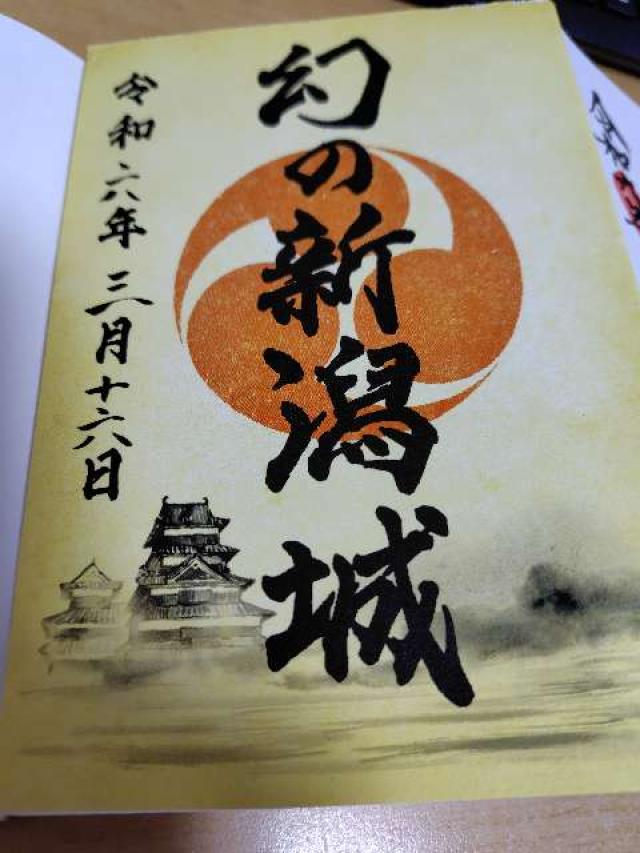 幻の新潟城
令和六年三月十六日